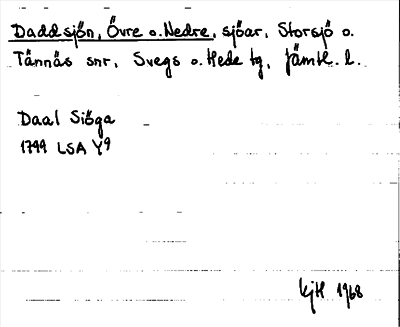 Daddsjön, Övre o. Nedre, sjöar, Storsjö o.
Tännäs snr, Svegs o. Hede tg, Jämtl. l.
Daal Siöga
1799 LSA Y9
KjH 1968